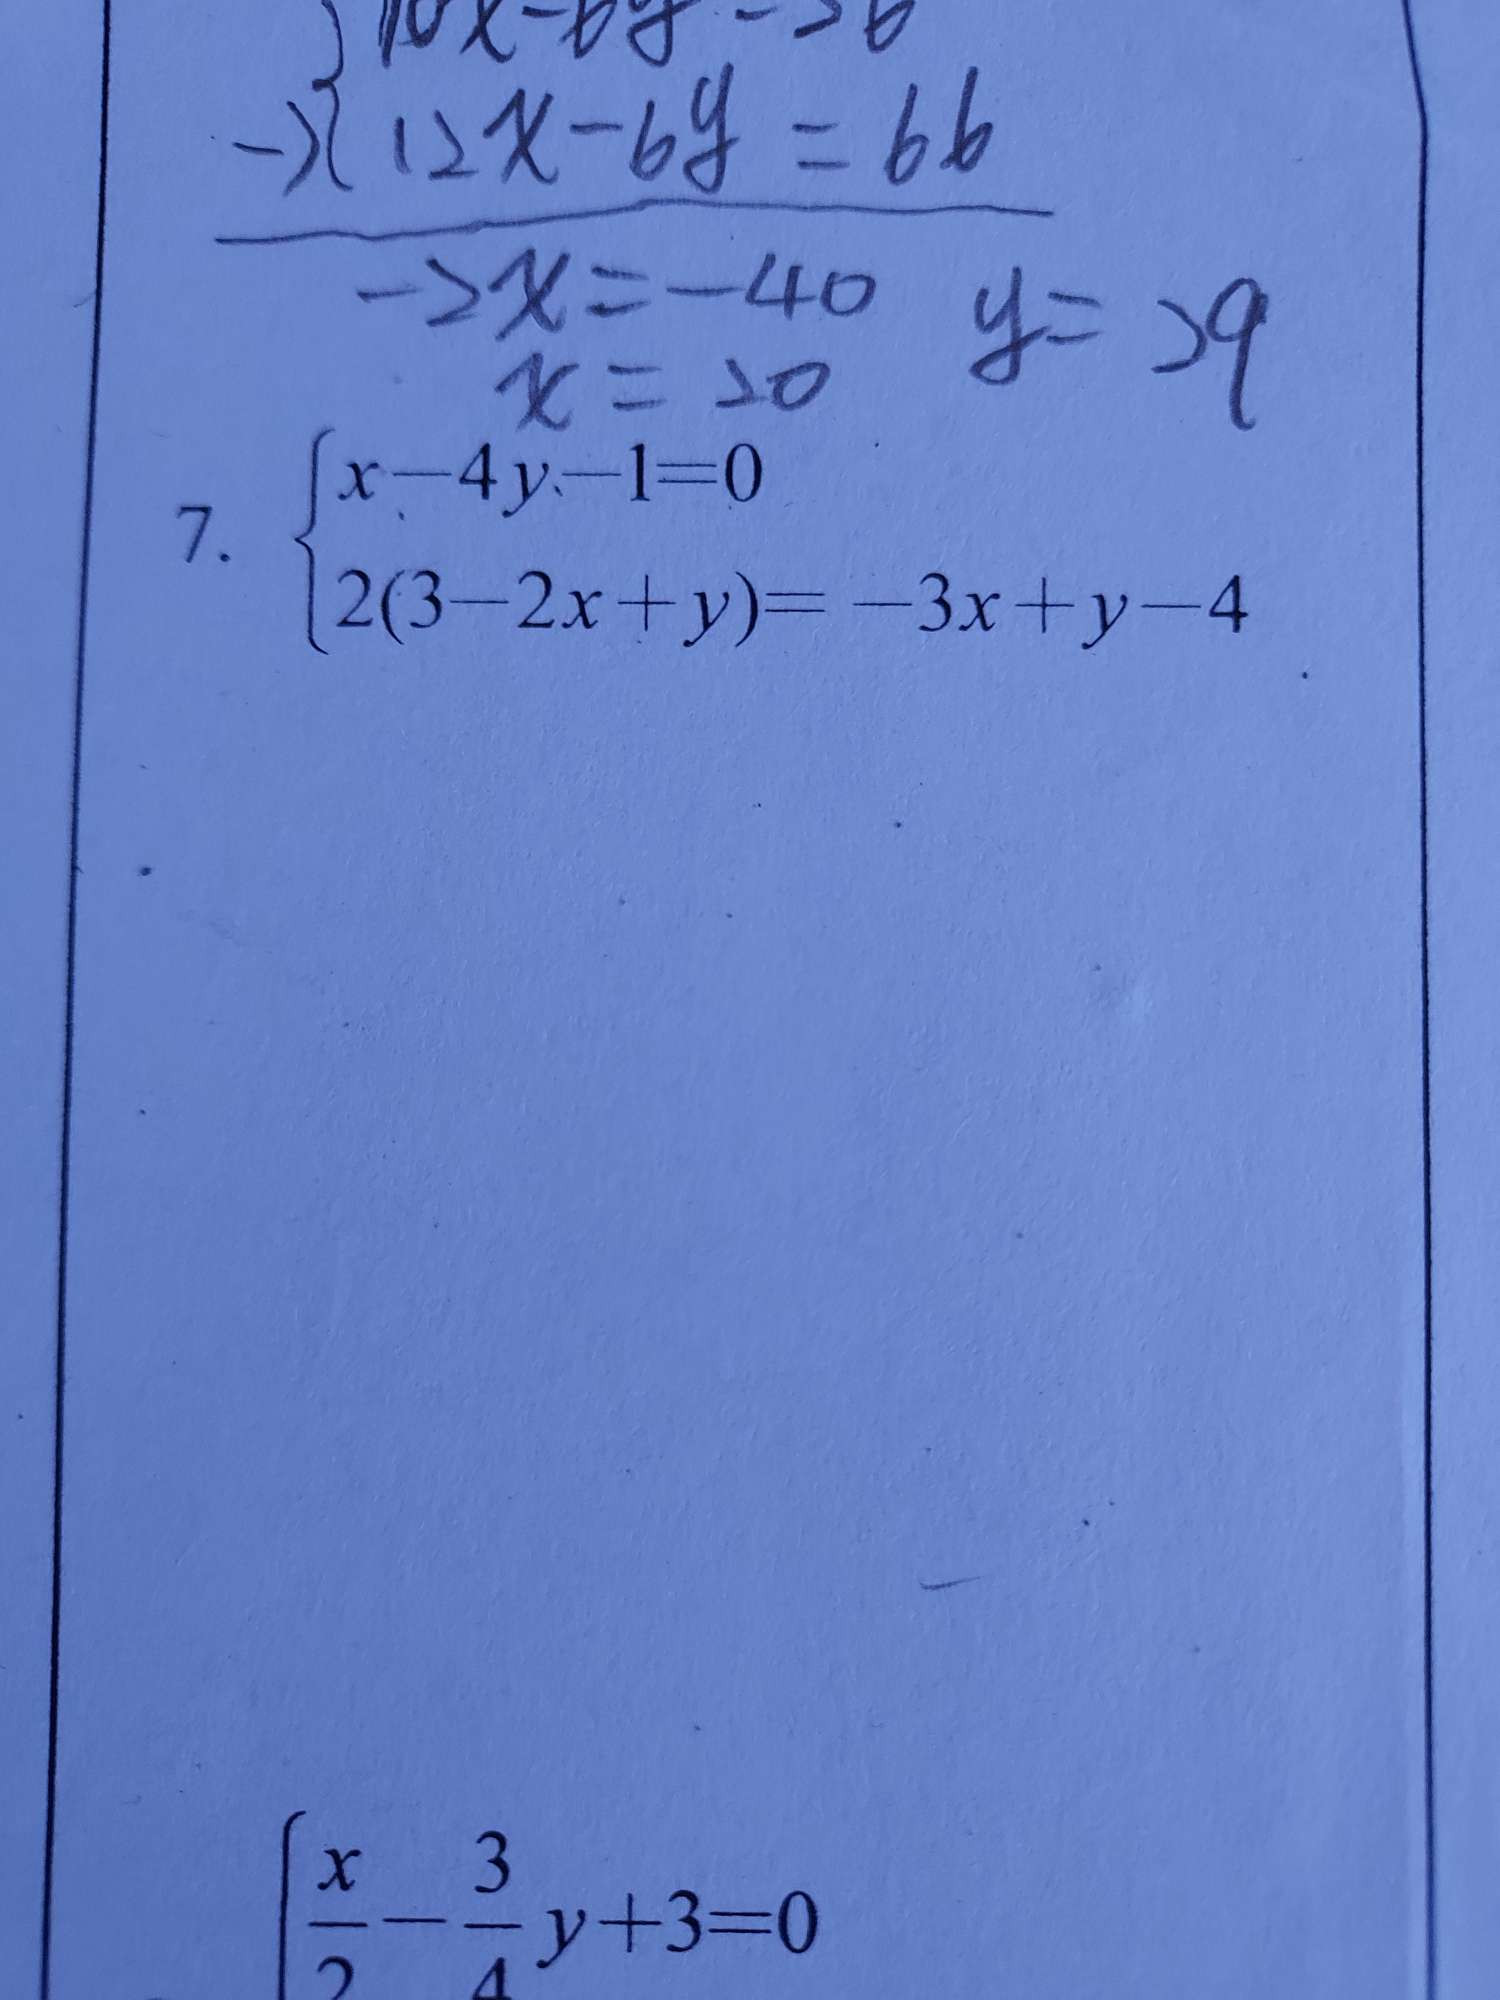 10x-6y=26
→{12x-6y=66
-2x=-40 y=29
x=20
7. {x-4y-1=0
2(3-2x+y)= -3x+y-4
x/2-3/4y+3=0